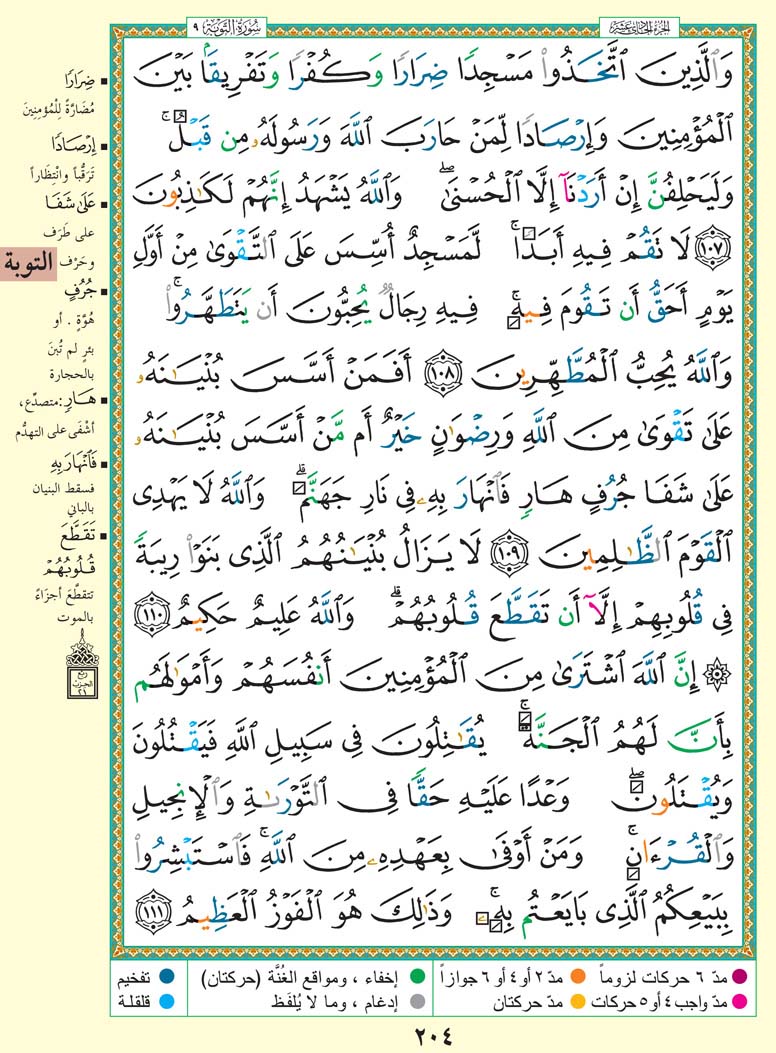 الجزء الحادي عشر
سورة التوبة ٩
وَالَّذِينَ اتَّخَذُوا مَسْجِدًا ضِرَارًا وَكُفْرًا وَتَفْرِيقًا بَيْنَ
الْمُؤْمِنِينَ وَإِرْصَادًا لِّمَنْ حَارَبَ اللَّهَ وَرَسُولَهُ مِن قَبْلُ ۚ
وَلَيَحْلِفُنَّ إِنْ أَرَدْنَا إِلَّا الْحُسْنَىٰ ۖ وَاللَّهُ يَشْهَدُ إِنَّهُمْ لَكَاذِبُونَ
١٠٧ لَا تَقُمْ فِيهِ أَبَدًا ۚ لَّمَسْجِدٌ أُسِّسَ عَلَى التَّقْوَىٰ مِنْ أَوَّلِ
يَوْمٍ أَحَقُّ أَن تَقُومَ فِيهِ ۚ فِيهِ رِجَالٌ يُحِبُّونَ أَن يَتَطَهَّرُوا ۚ
وَاللَّهُ يُحِبُّ الْمُطَّهِّرِينَ ١٠٨ أَفَمَنْ أَسَّسَ بُنْيَانَهُ
عَلَىٰ تَقْوَىٰ مِنَ اللَّهِ وَرِضْوَانٍ خَيْرٌ أَم مَّنْ أَسَّسَ بُنْيَانَهُ
عَلَىٰ شَفَا جُرُفٍ هَارٍ فَانْهَارَ بِهِ فِي نَارِ جَهَنَّمَ ۗ وَاللَّهُ لَا يَهْدِي
الْقَوْمَ الظَّالِمِينَ ١٠٩ لَا يَزَالُ بُنْيَانُهُمُ الَّذِي بَنَوْا رِيبَةً
فِي قُلُوبِهِمْ إِلَّا أَن تَقَطَّعَ قُلُوبُهُمْ ۗ وَاللَّهُ عَلِيمٌ حَكِيمٌ ١١٠
۞ إِنَّ اللَّهَ اشْتَرَىٰ مِنَ الْمُؤْمِنِينَ أَنفُسَهُمْ وَأَمْوَالَهُم
بِأَنَّ لَهُمُ الْجَنَّةَ ۚ يُقَاتِلُونَ فِي سَبِيلِ اللَّهِ فَيَقْتُلُونَ
وَيُقْتَلُونَ ۖ وَعْدًا عَلَيْهِ حَقًّا فِي التَّوْرَاةِ وَالْإِنجِيلِ
وَالْقُرْءَانِ ۚ وَمَنْ أَوْفَىٰ بِعَهْدِهِ مِنَ اللَّهِ ۚ فَاسْتَبْشِرُوا
بِبَيْعِكُمُ الَّذِي بَايَعْتُم بِهِ ۚ وَذَٰلِكَ هُوَ الْفَوْزُ الْعَظِيمُ ١١١
ضِرَارًا
مُضَارَّةً لِلْمُؤْمِنِينَ
إِرْصَادًا
تَرَقُّباً وانْتِظاراً
عَلَىٰ شَفَا
على طَرَف
وحَرْف
التوبة
جُرُفٍ
هُوَّة . أو
بئرٍ لم تُبنَ
بالحجارة
هَارٍ: متصدِّع،
أشْفَى على التهدُّم
فَانْهَارَ بِهِ
فسقط البنيان
بالباني
تَقَطَّعَ
قُلُوبُهُمْ
تتقطَّعَ أجزاءً
بالموت
ربع
الحزب
٢١
مدّ ٦ حركات لزوماً
مدّ ٢ أو ٤ أو ٦ جوازاً
إخفاء ، ومواقع الغُنَّة (حركتان)
تفخيم
مدّ واجب ٤ أو ٥ حركات
مدّ حركتان
إدغام ، وما لا يُلفَظ
قلقلة
٢٠٤